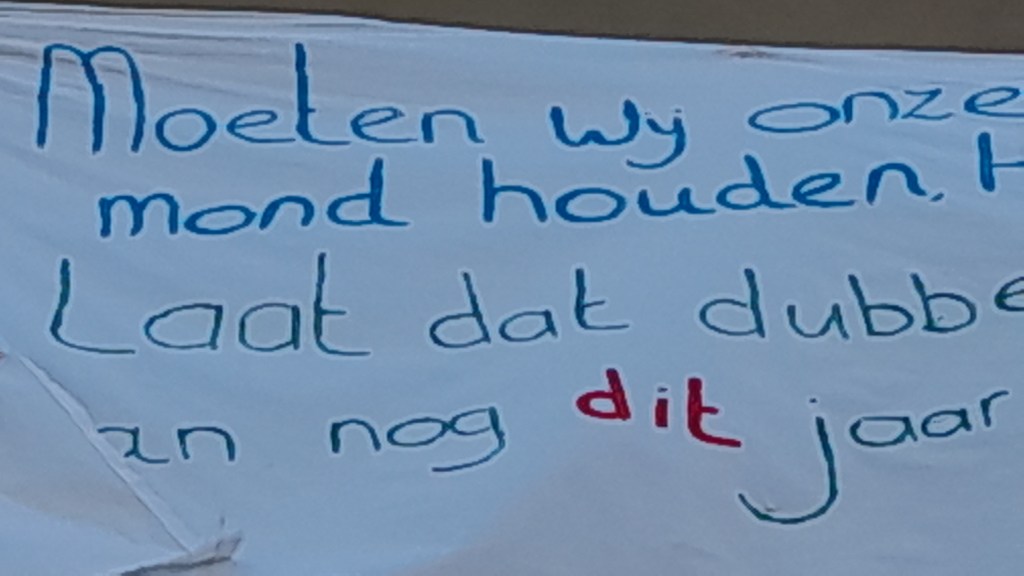 Moeten wij onze
mond houden. H
Laat dat dubbe
nog dit jaar